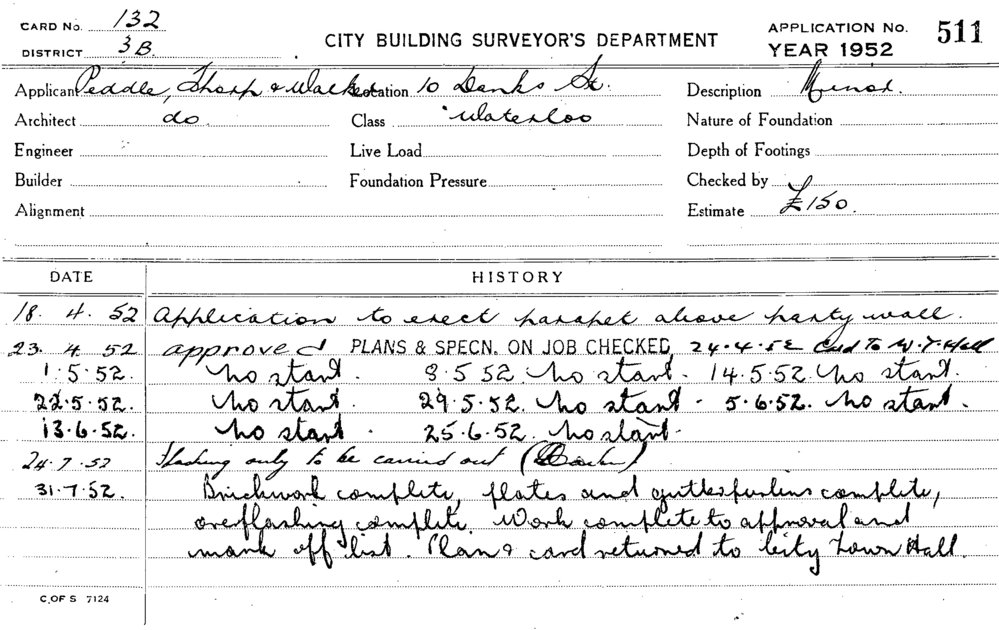 CARD No. 132
DISTRICT 3B.
CITY BUILDING SURVEYOR'S DEPARTMENT
APPLICATION No. 511
YEAR 1952
Applicant Peddle, Thorp & Walker Location 10 Danks St. Description Minor.
Architect do Class Waterloo Nature of Foundation
Engineer Live Load Depth of Footings
Builder Foundation Pressure Checked by
Alignment Estimate £150.
DATE HISTORY
18. 4. 52 Application to erect parapet above party wall.
23. 4. 52 approved PLANS & SPECN. ON JOB CHECKED 24-4-52 Card To W. T. Hall
1.5.52. No start. 8.5.52. No start. 14.5.52. No start.
22.5.52. No start. 29.5.52. No start. 5.6.52. No start.
13.6.52. No start. 25.6.52. No start.
24.7.52 Flashing only to be carried out
31.7.52. Brickwork complete, plates and gutter purlins complete,
overflashing complete. Work complete to approval and
mark off list. Plan & card returned to City Town Hall.
C OF S 7124